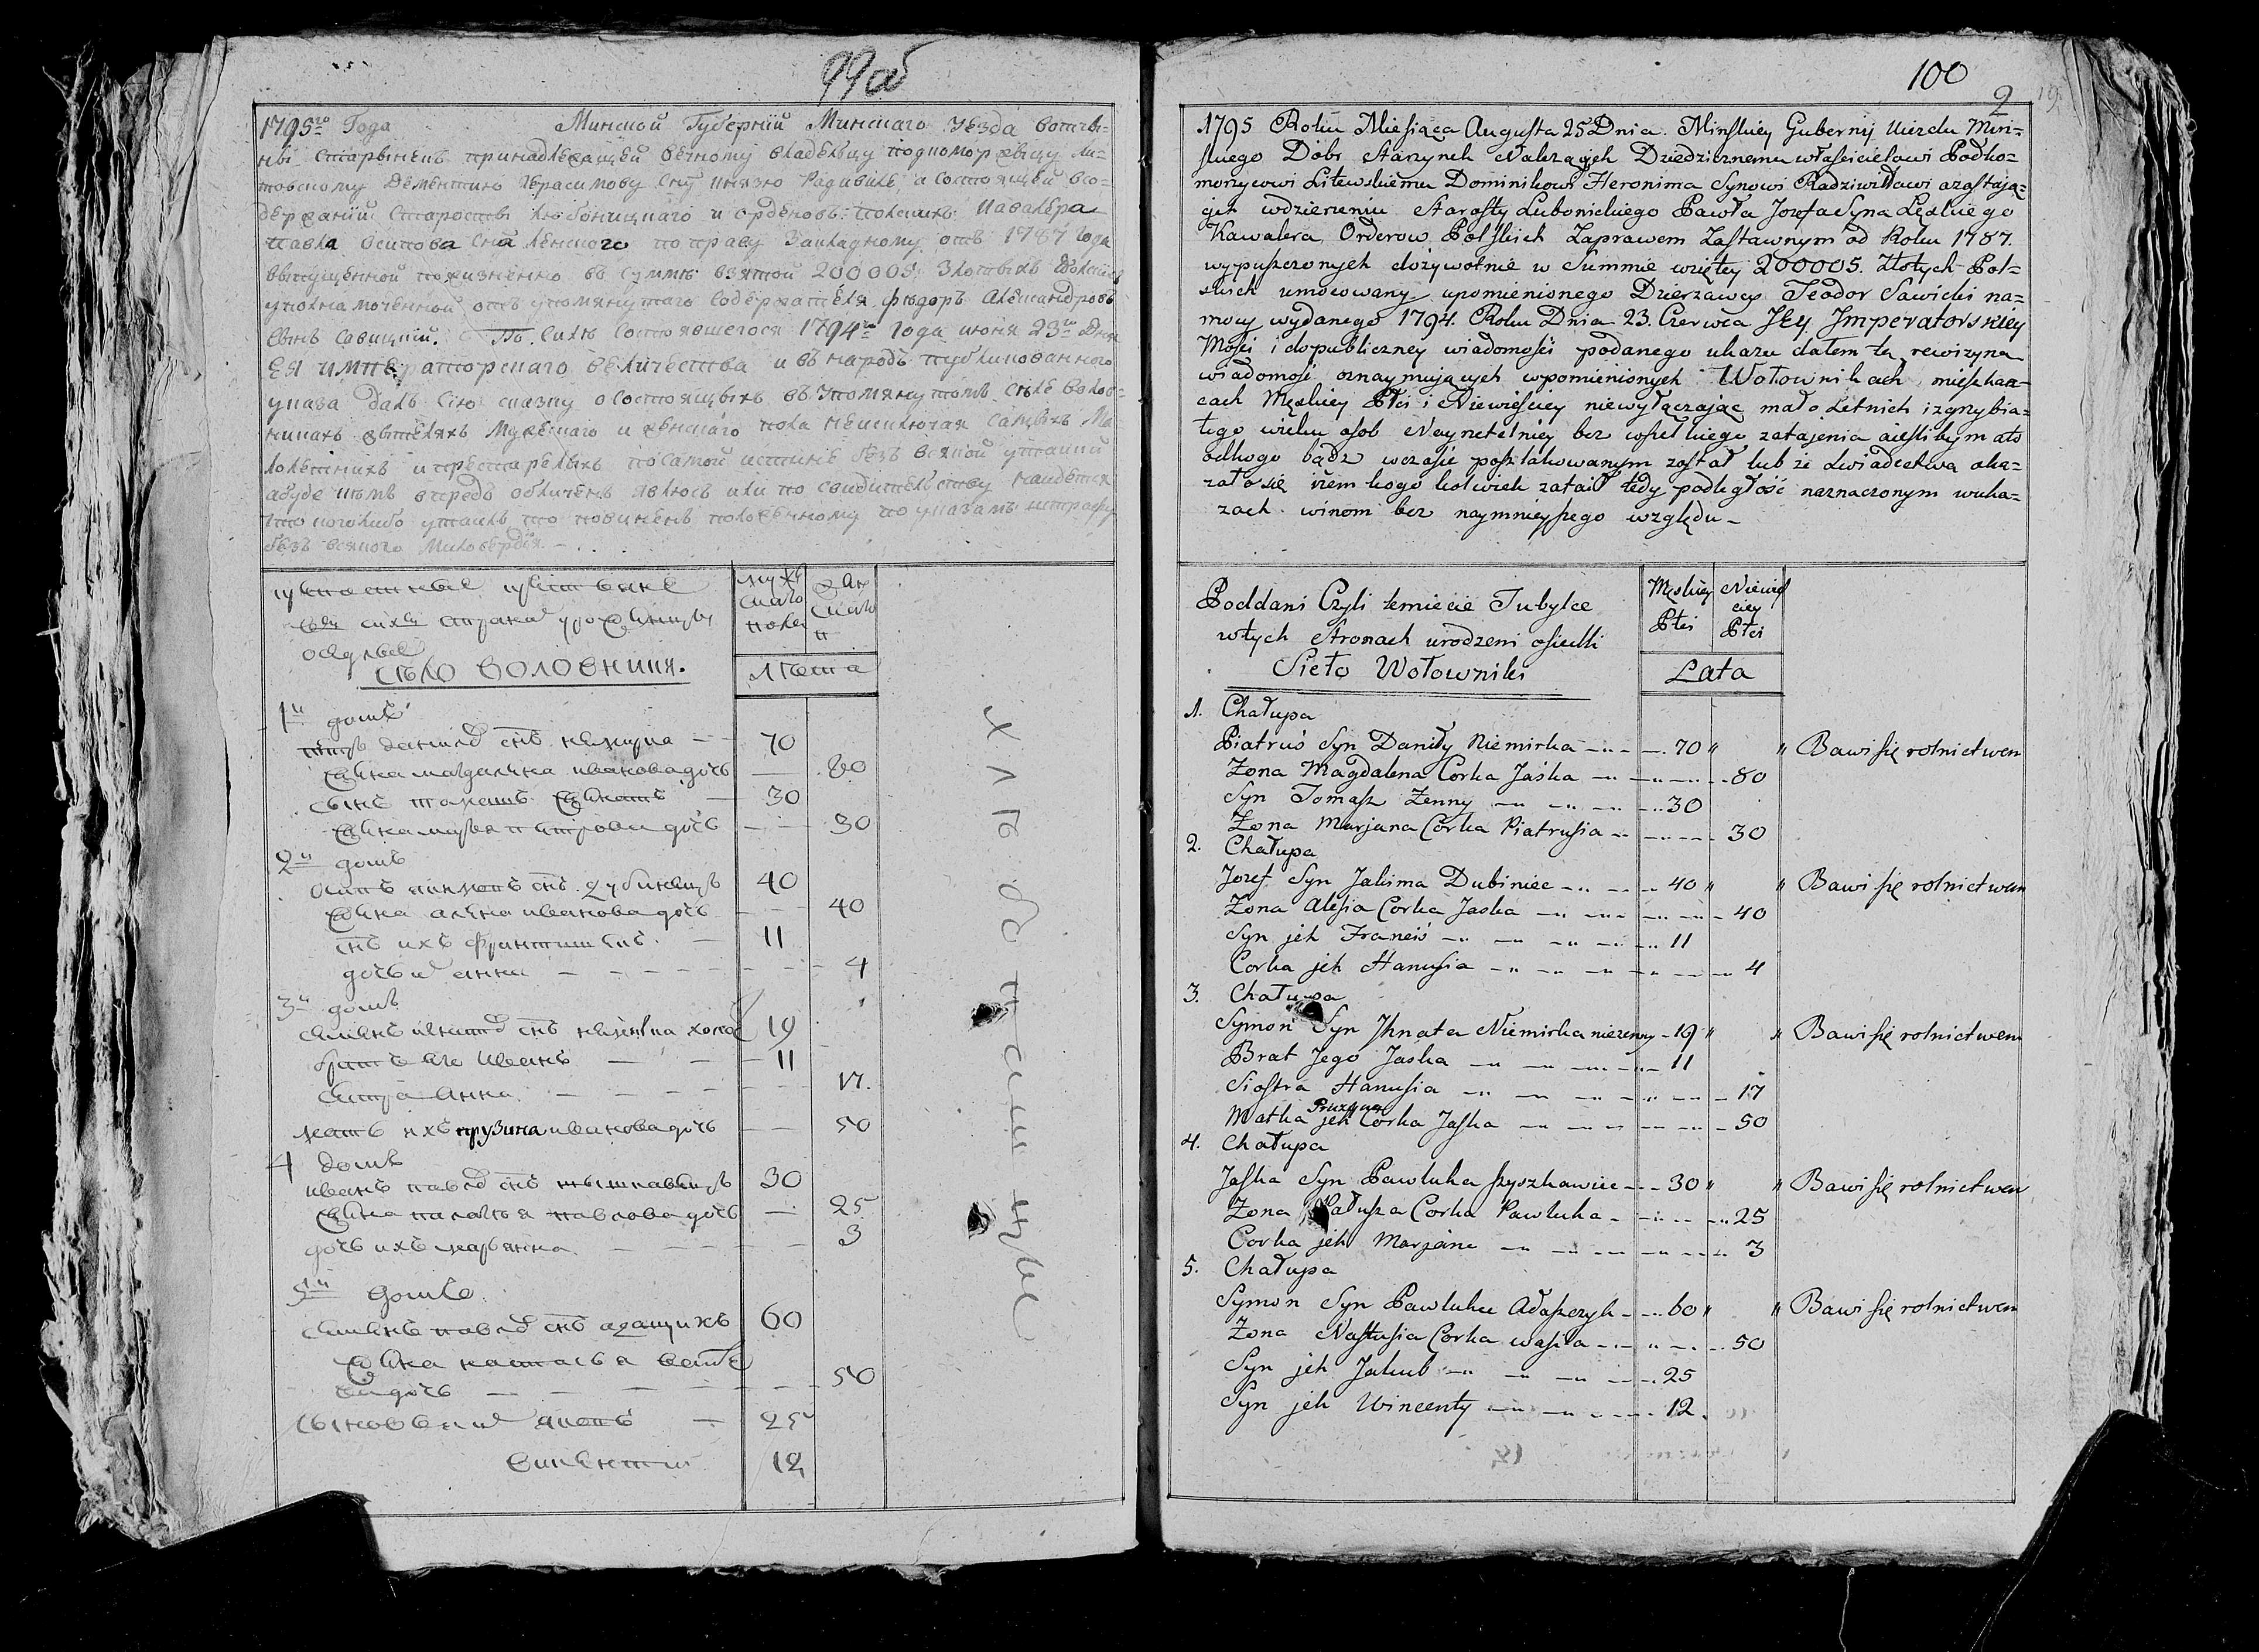 99об
1795го Года Минской Губернии Минскаго Уезда вотчи=
ны Старынекъ принадлежащей вечному владельцу подкоморжецу ли=
товскому Дементию Герасимову сну князю Радивиле, а состоящей восо=
держании Старосты Любоницкаго и орденовъ полскихъ кавалера
павла осипова сна ленского по праву закладному отъ 1787 года
выпущенной пожизненно въ сумме взятой 200005 злотыхъ
уполна моченной отъ упомянутаго содержателя федоръ александровъ
сынъ савицкий. По силе состоявшегося 1794го года июня 23го дня
ЕЯ ИМПЕраторскаго величества и въ народъ публикованного
указа далъ сию сказку о состоящыхъ въ упомянутомъ селе волов=
никахъ жителяхъ мужескаго и женскаго пола неисключая самыхъ ма=
лолетнихъ и престарелыхъ по самой истине безъ всякой утайки
абуде кемъ впредь обличенъ явлюсь или по свидительству найдется
что коголибо утаилъ то повиненъ положенному по указамъ штрафу
безъ всякого милосердия
оседлые
село воловники.
лета
1й домъ
данилов снъ немирка 70
жена магдалина иванова дочь 80
сынъ томашъ женатъ 30
жена марья петрова дочь 30
2й домъ
осипъ якимовъ снъ дубинецъ 40
жена алена иванова дочь 40
снъ ихъ францишекъ 11
дочь анна 4
3й домъ
семенъ игнатов снъ немирка холос 19
братъ его иванъ 11
сестра анна 17.
мать ихъ прузина иванова дочь 50
4 домъ
иванъ павлов снъ 30
жена павлова дочь 25
дочь ихъ марьянна 3
5й домъ
семенъ павлов снъ адащикъ 60
жена настасья
дочь 50
сыновья яковъ 25
викентий 12
100
2
1795 Roku Miesiąca Augusta 25 Dnia. Minskiey Gubernij Uiezdu Min=
skiego Dobr Starzynek Należących Dziedzicznemu właścicielowi Podko=
morzycowi Litewskiemu Dominikowi Heronima Synowi Radziwiłłowi azostają=
cych wdzierzeniu Starosty Lubonickiego Pawła Jozefa Syna Lęskiego
Kawalera Orderow Polskich Zaprawem Zastawnym od Roku 1787.
wypuszczonych dozywotnie w Summie wziętey 200005. Złotych Pol=
skich umocowany upomienionego Dzierzawcy Teodor Sawicki na=
mocy wydanego 1794. Roku Dnia 23. Czerwca JEY Jmperatorskiey
Mości i dopubliczney wiadomości podanego ukazu dałem tę rewizyną
wiadomość oznaymujących wpomienionych Wołownikach mieszkan=
cach Męskiey Płci i Niewieściey niewyłączając mało Letnich i zgrzybia=
łego wieku osob Nayrzetelniey bez wszelkiego zatajenia aieslibym ato
odkogo bądz wczasie poszlakowanym został lub ze świadectwa oka=
zało się żem kogo kolwiek zataił tedy podległość naznaczonym wuka=
zach winom bez naymnieyszego względu
Poddani Czyli kmiecie Tubylce
wtych Stronach urodzeni osiedli
Sioło Wołowniki
Męskiey Płci
Niewieściey Płci
Lata
1. Chałupa
Piatruś Syn Daniły Niemirka 70 " " Bawi się rolnictwem
Zona Magdalena Corka Jaśka 80
Syn Tomasz Zenny 30
Zona Marjana Corka Piatrusia 30
2. Chałupa
Jozef Syn Jakima Dubiniec 40 " " Bawi się rolnictwem
Zona Alesia Corka Jaska 40
Syn jch Franciś 11
Corka jch Hanusia 4
3. Chałupa
Symon Syn Jhnata Niemirka niezenny 19 " " Bawi się rolnictwem
Brat Jego Jaska 11
Siostra Hanusia 17
Matka jch Pruzyna Corka Jaska 50
4. Chałupa
Jaska Syn Pawluka Szyszkawiec 30 " " Bawi się rolnictwem
Zona Pałusza Corka Pawluka 25
Corka jch Marjana 3
5. Chałupa
Symon Syn Pawluka Adaszczyk 60 " " Bawi się rolnictwem
Zona Nastusia Corka wasila 50
Syn jch Jakub 25
Syn jch Wincenty 12